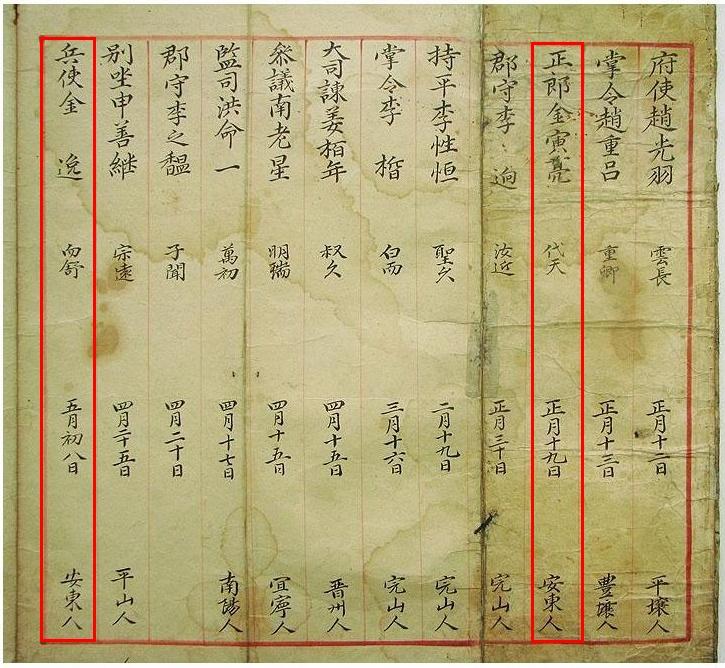 府使趙光羽 雲長 正月十二日 平壤人
掌令趙重呂 重卿 正月十三日 豊壤人
正郎金寅亮 代天 正月十九日 安東人
郡守李逈 汝近 正月三十日 完山人
持平李性恒 聖久 二月十九日 完山人
掌令李 白而 三月十六日 完山人
大司諫姜栢年 叔久 四月十五日 晋州人
叅議南老星 明瑞 四月十五日 宜寧人
監司洪命一 萬初 四月十七日 南陽人
郡守李之馧 子聞 四月二十日
別坐申善継 宗遠 四月二十五日 平山人
兵使金逸 向舒 五月初八日 安東人